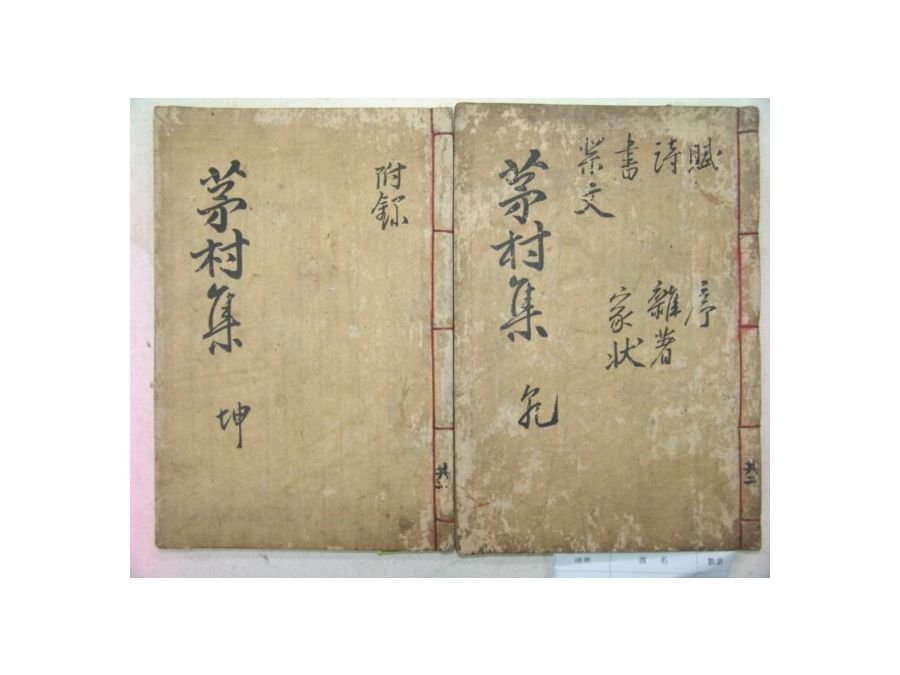 共二
賦
序
詩
雜著
書
家狀
祭文
茅村集 乾
共二
附錄
茅村集 坤
書名
數量